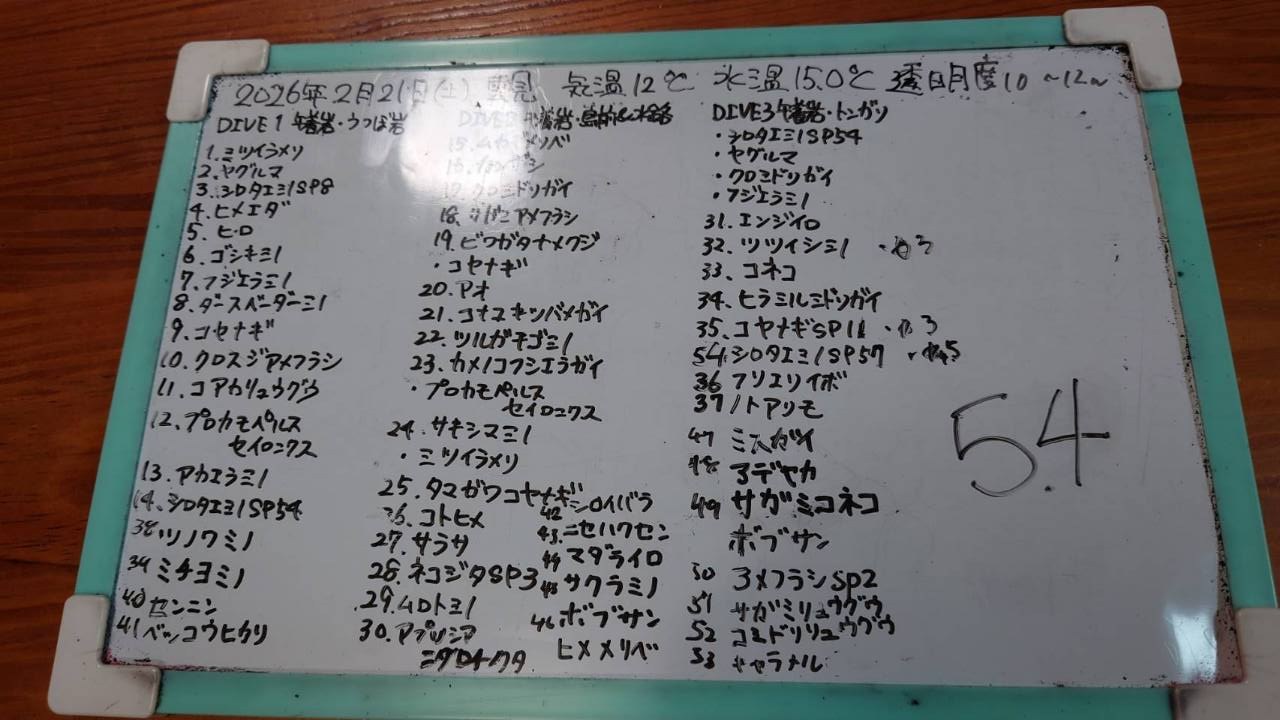 2026年2月21日(土) 雲見 気温12℃ 水温15.0℃ 透明度10~12m
DIVE1 牛着岩・うつぼ岩
1.ミツイラメリ
2.ヤグルマ
3.シロタエミノSP8
4.ヒメエダ
5.ヒロ
6.ゴシキミノ
7.フジエラミノ
8.ダースベーダーミノ
9.コヤナギ
10.クロスジアメフラシ
11.コアカリュウグウ
12.プロカモペルルス
セイロニクス
13.アカエラミノ
14.シロタエミノSP54
38.ツノワミノ
39ミチヨミノ
40センニン
41ベッコウヒカリ
DIVE2
17.クロミドリガイ
18.アメフラシ
19.ビワガタナメクジ
・コヤナギ
20.アオ
21.コナユキツバメガイ
22.ツルガチゴミノ
23.カメノコフシエラガイ
・プロカモペルルス
セイロニクス
24.サキシマミノ
・ミツイラメリ
25.タマガワコヤナギ
26.コトヒメ
27.サラサ
28.ネコジタSP3
29.ムロトミノ
30.アプリシア
ニグロキンクタ
42シロイバラ
43.ニセハクセン
44マダライロ
45サクラミノ
46ボブサン
ヒメメリベ
DIVE3牛着岩・トンガリ
・シロタエミノSP54
・ヤグルマ
・クロミドリガイ
・フジエラミノ
31.エンジイロ
32.ツツイシミノ
33.コネコ
34.ヒラミルミドリガイ
35.コヤナギSP11
54.シロタエミノSP57
36フリエリイボ
37ノトアリモ
47ミスガイ
48アデヤカ
49サガミコネコ
ボブサン
50アメフラシSP2
51サガミリュウグウ
52コミドリリュウグウ
53キャラメル
54